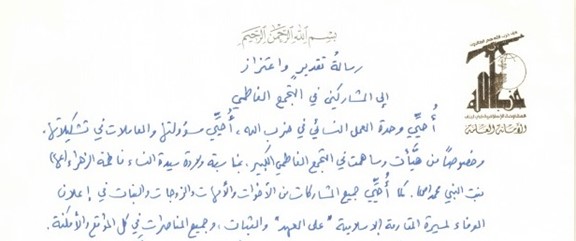 بسم الله الرحمن الرحيم
رسالة تقدير واعتزاز
إلى المشاركين في التجمع الفاطمي
أُحيِّي وحدة العمل النسائي في حزب الله، أُحيِّي مسؤولتها والعاملات في تشكيلاتها.
وخصوصاً من هيّأت وساهمت في التجمع الفاطمي الكبير، بمناسبة ولادة سيدة النساء فاطمة الزهراء (عها)
بنت النبي محمد (ص). كما أُحيِّي جميع المشاركات من الأخوات والأمهات والزوجات والبنات في إعلان
الوفاء لمسيرة المقاومة الإسلامية "على العهد" والثبات، وجميع المناصرات في كل المواقع والأمكنة.
حزب الله
المقاومة الإسلامية في لبنان
الأمانة العامة